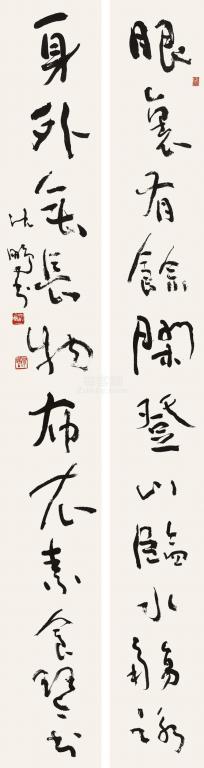 眼裏有餘閑登山臨水觴詠
身外無長物布衣素食琴書
沈鵬書